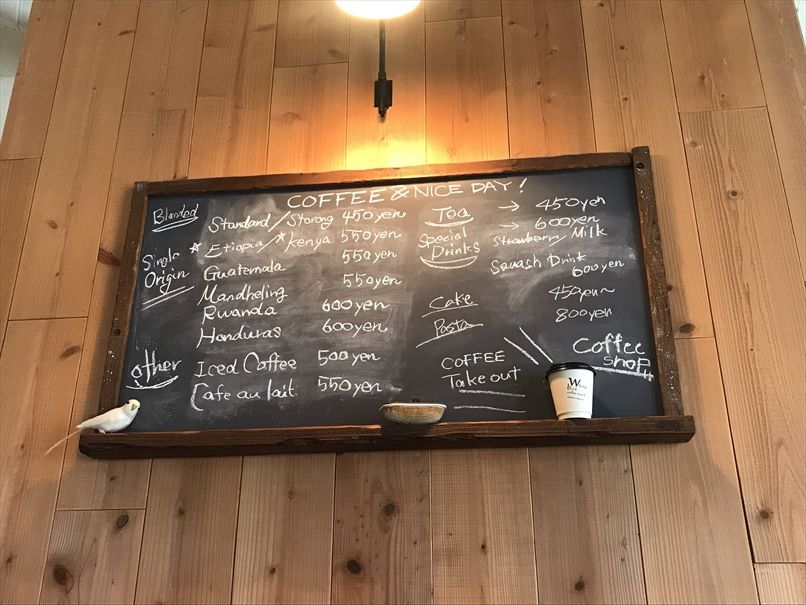 COFFEE & NICE DAY!
Blended
Standard / Storong 450yen
Single Origin
* Etiopia / * Kenya 550yen
Guatemala 550yen
Mandheling 550yen
Rwanda 600yen
Honduras 600yen
other
Iced Coffee 500yen
Cafe au lait 550yen
Tea → 450yen
Special Drinks → 600yen
Strawberry Milk
Squash Drink 600yen
Cake 450yen~
Pasta 800yen
COFFEE
Take out
Coffee
shop
W